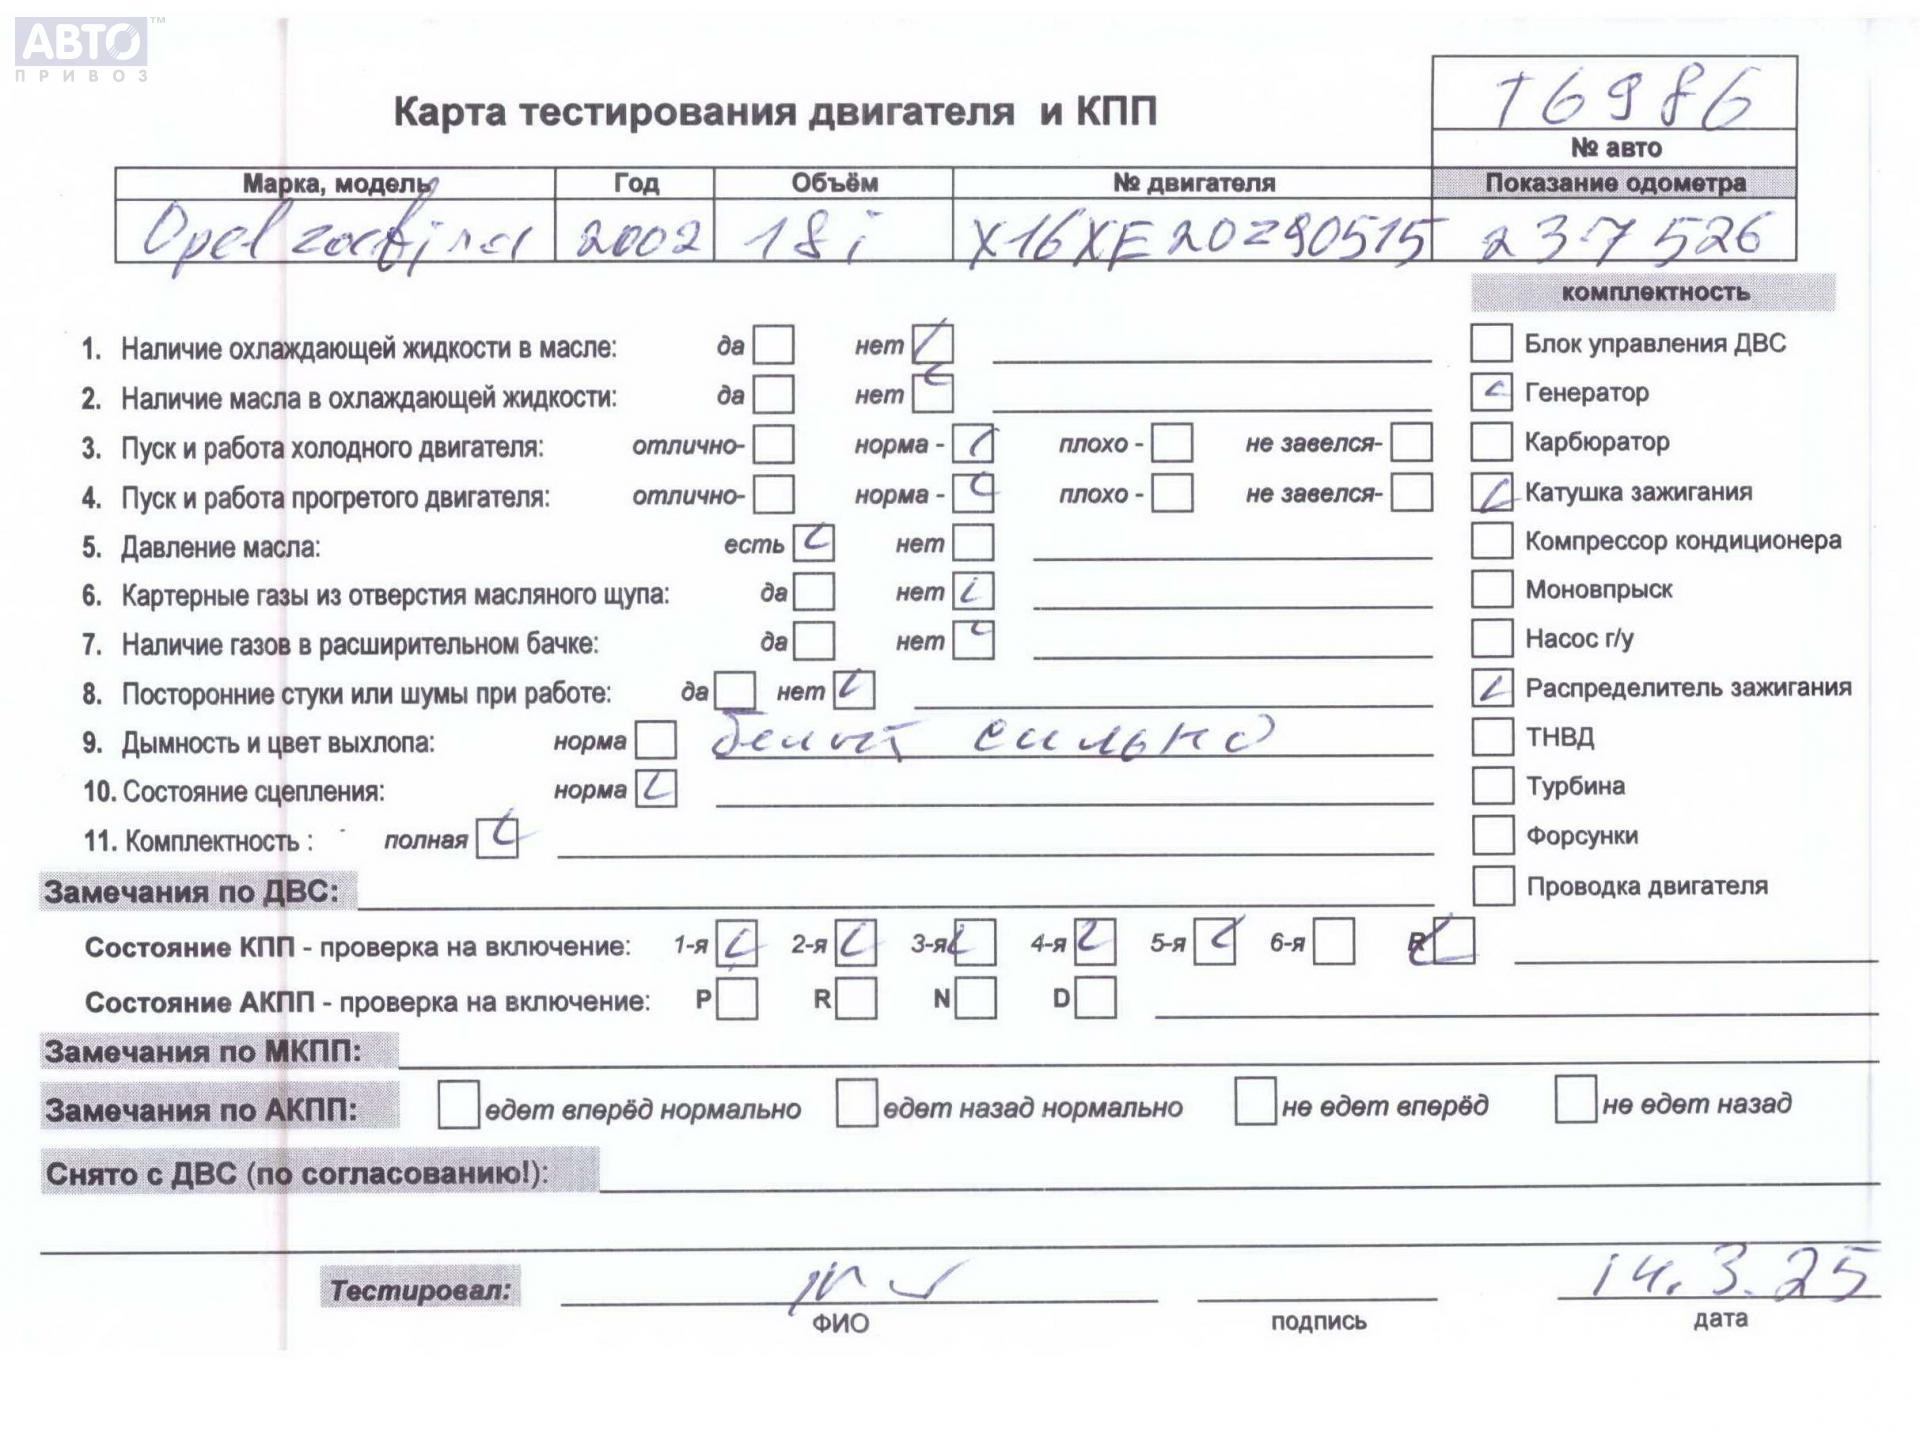 АВТО™
ПРИВОЗ
Т6986
Карта тестирования двигателя и КПП
№ авто
Марка, модель Год Объём № двигателя Показание одометра
Opel zafira 2002 18i X16XE20Z90515 237526
комплектность
1. Наличие охлаждающей жидкости в масле: да нет
Блок управления ДВС
2. Наличие масла в охлаждающей жидкости: да нет
Генератор
3. Пуск и работа холодного двигателя: отлично- норма - плохо - не завелся-
Карбюратор
4. Пуск и работа прогретого двигателя: отлично- норма - плохо - не завелся-
Катушка зажигания
5. Давление масла: есть нет
Компрессор кондиционера
6. Картерные газы из отверстия масляного щупа: да нет
Моновпрыск
7. Наличие газов в расширительном бачке: да нет
Насос г/у
8. Посторонние стуки или шумы при работе: да нет
Распределитель зажигания
9. Дымность и цвет выхлопа: норма белый сильно
ТНВД
10. Состояние сцепления: норма
Турбина
11. Комплектность : полная
Форсунки
Замечания по ДВС:
Проводка двигателя
Состояние КПП - проверка на включение: 1-я 2-я 3-я 4-я 5-я 6-я R
Состояние АКПП - проверка на включение: P R N D
Замечания по МКПП:
Замечания по АКПП: едет вперёд нормально едет назад нормально не едет вперёд не едет назад
Снято с ДВС (по согласованию!):
Тестировал: 14.3.25
ФИО подпись дата